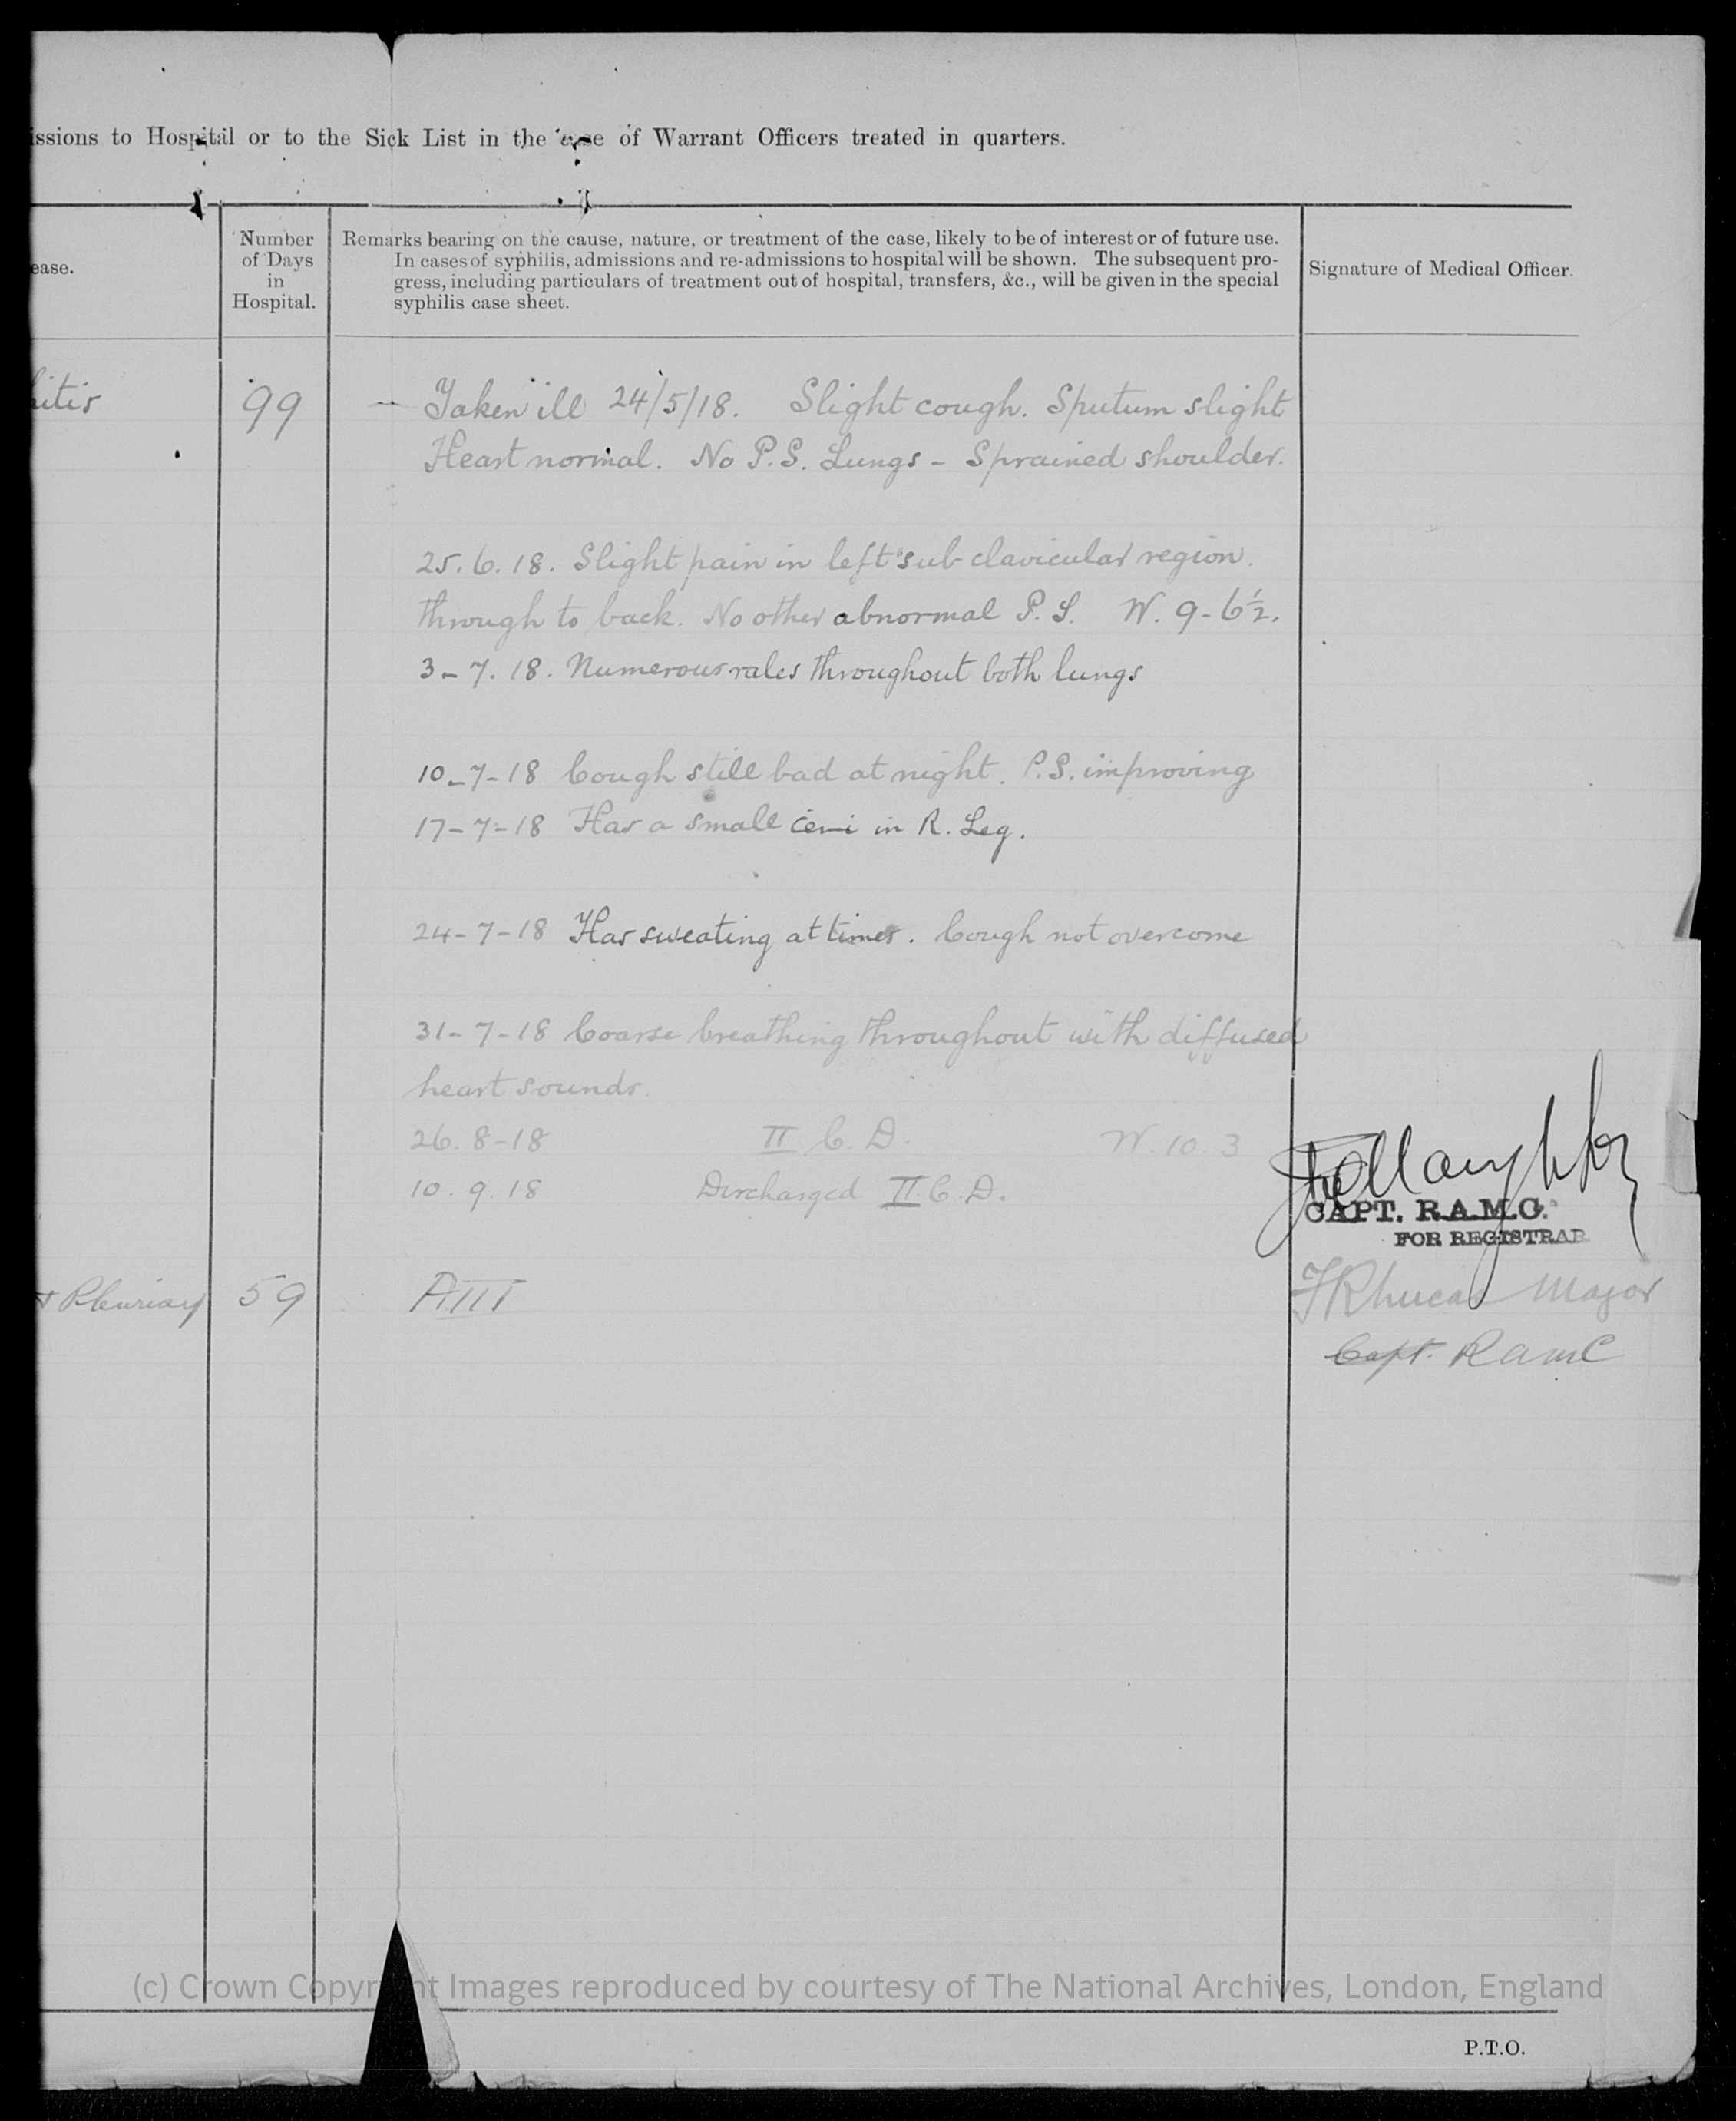 issions to Hospital or to the Sick List in the case of Warrant Officers treated in quarters.
ease.
Number of Days in Hospital.
Remarks bearing on the cause, nature, or treatment of the case, likely to be of interest or of future use.
In cases of syphilis, admissions and re-admissions to hospital will be shown. The subsequent pro-
gress, including particulars of treatment out of hospital, transfers, &c., will be given in the special
syphilis case sheet.
Signature of Medical Officer.
hitis 99 — Taken ill 24/5/18. Slight cough. Sputum slight
Heart normal. No P.S. Lungs - Sprained shoulder.
25.6.18. Slight pain in left sub clavicular region.
through to back. No other abnormal P.S. W. 9-6½.
3-7.18. Numerous rales throughout both lungs
10-7-18 Cough still bad at night. P.S. improving
17-7-18 Has a small in R. Leg.
24-7-18 Has sweating at times. Cough not overcome
31-7-18 Coarse breathing throughout with diffused
heart sounds.
26.8-18 II C.D. W. 10.3
10.9.18 Discharged II C.D.
CAPT. R.A.M.C.
FOR REGISTRAR
& Pleurisy 59 AIII Major
Capt. RamC
(c) Crown Copyright Images reproduced by courtesy of The National Archives, London, England
P.T.O.